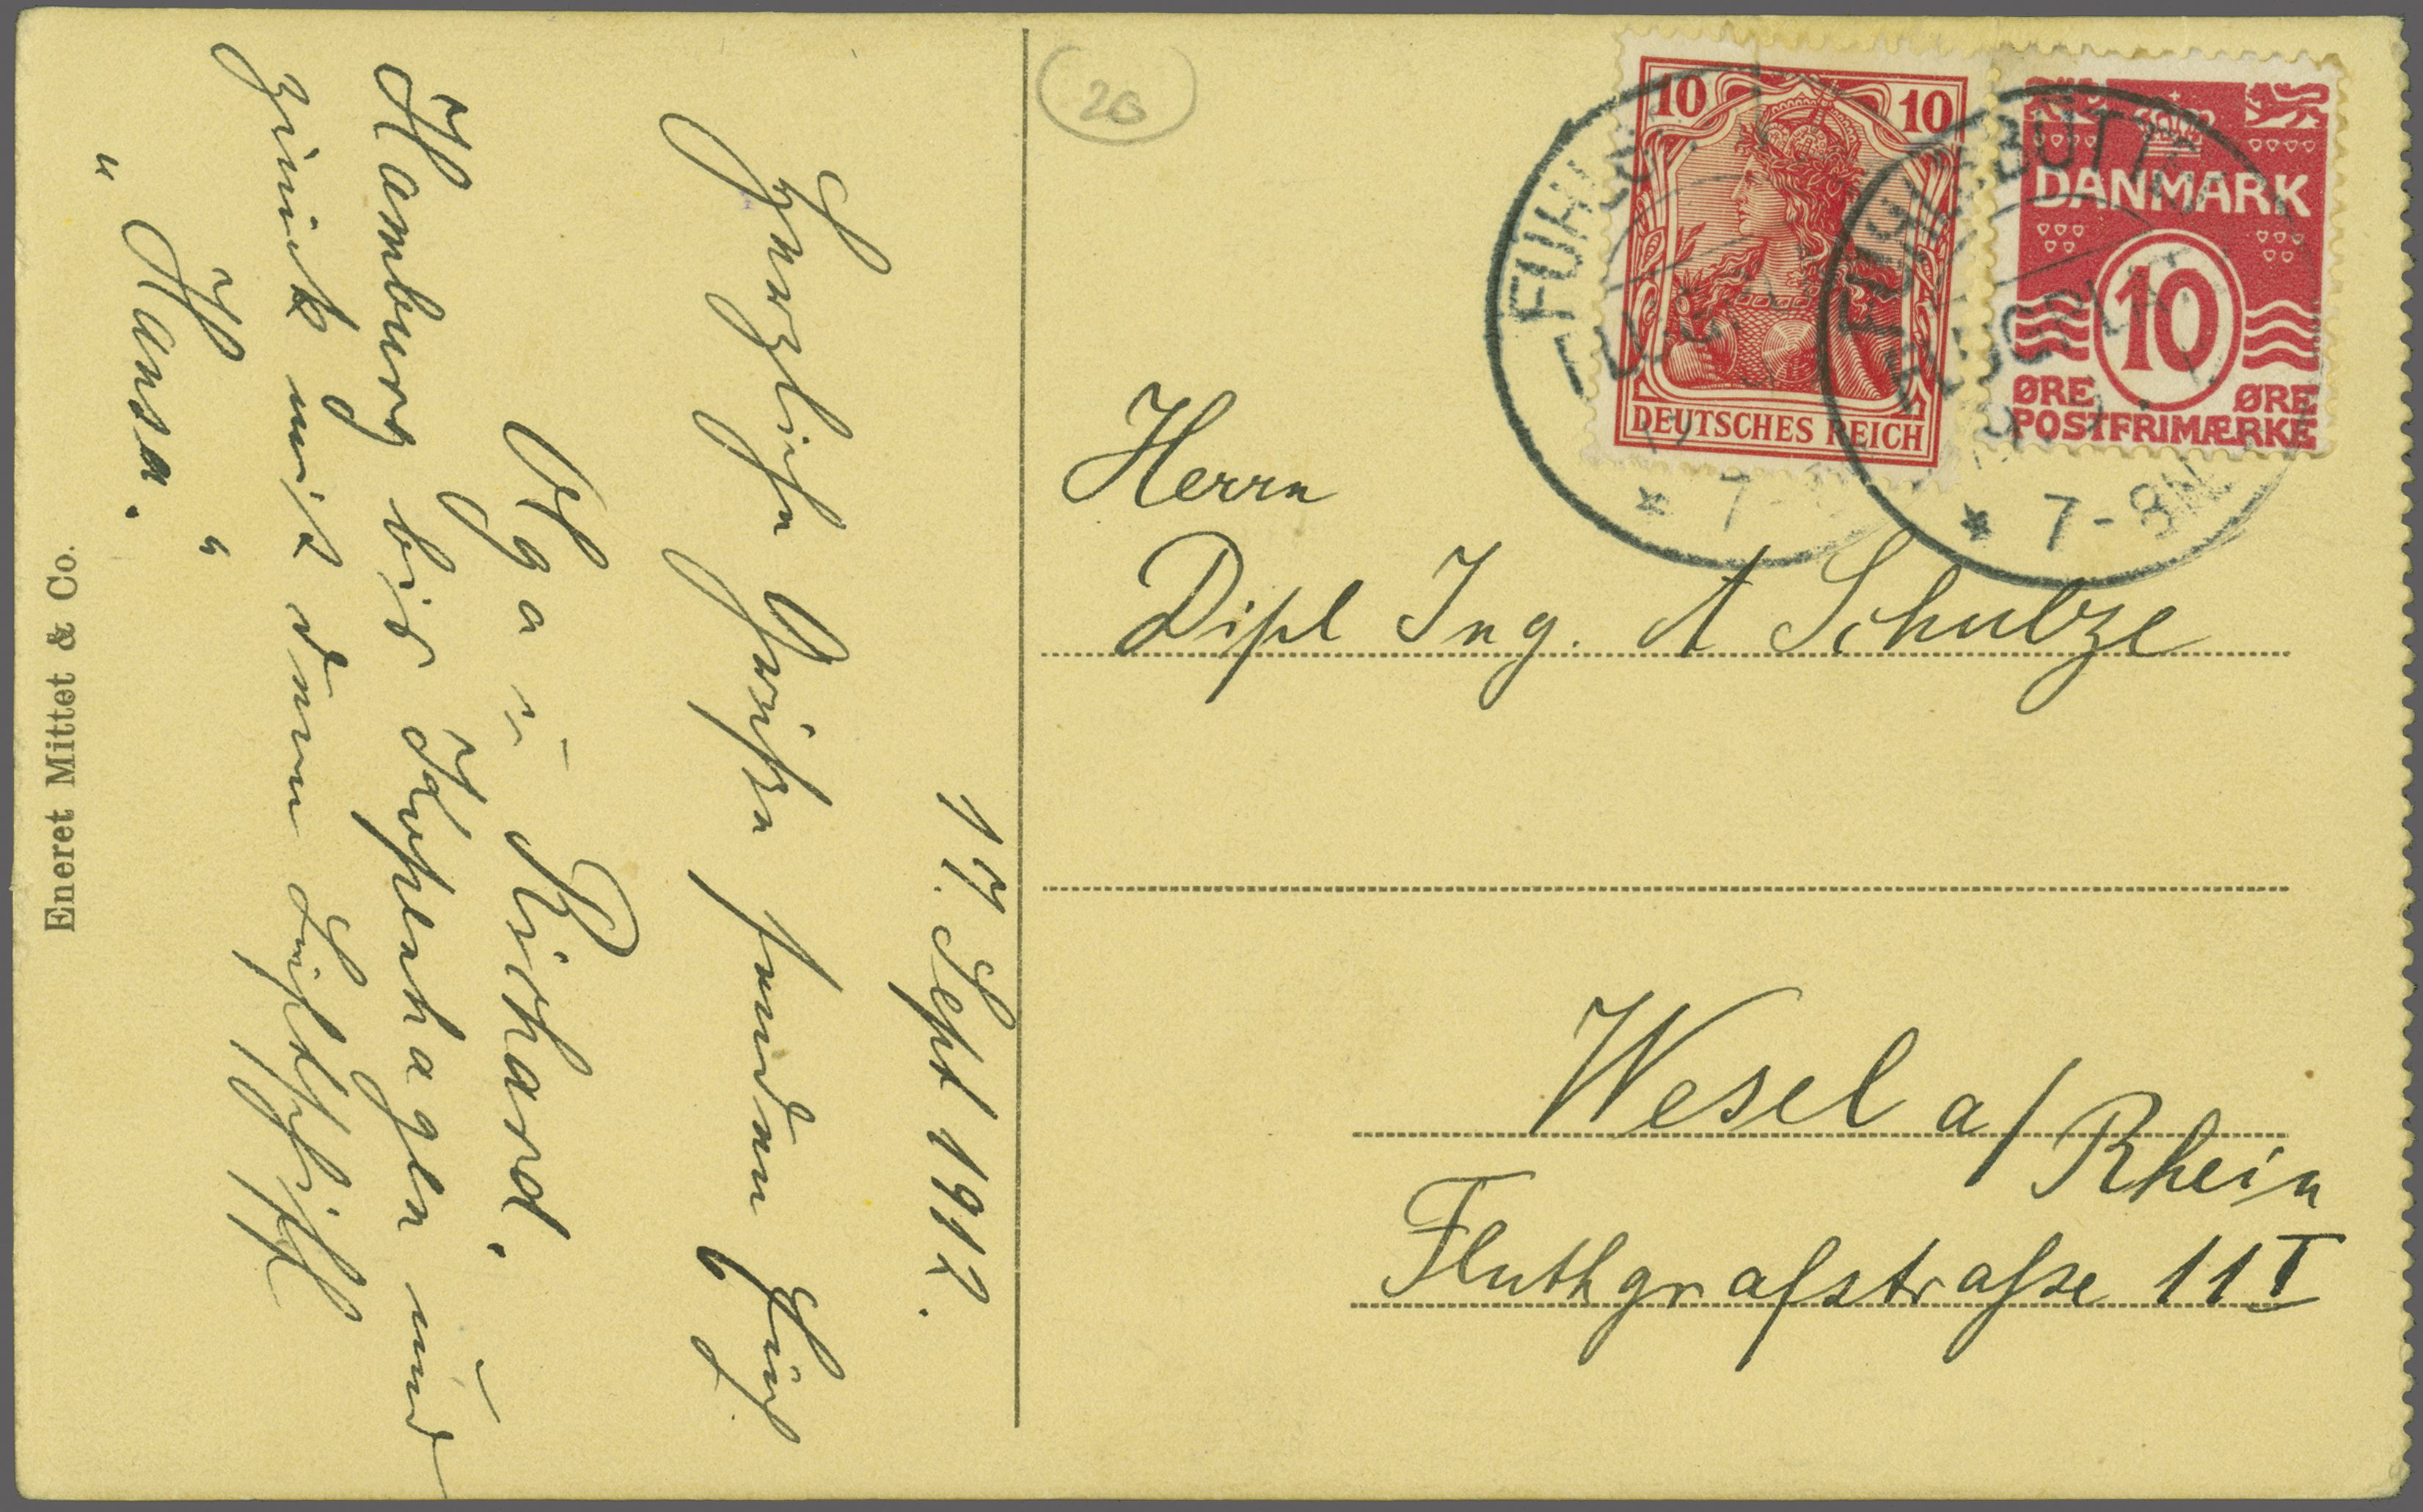 17. Sept 1912.
Herzliche Grüße senden Euch
Olga u Richard.
Hamburg bis Kopenhagen und
zurück mit dem Luftschiff
"Hansa."
Eneret Mittet & Co.
20
10 10
DEUTSCHES REICH
DANMARK
10
ØRE ØRE
POSTFRIMÆRKE
FUHLSBÜTTEL
* 7-8N
FUHLSBÜTTEL
* 7-8N
Herrn
Dipl Ing. A Schulze
Wesel a/Rhein
Fluthgrafstraße 11 I